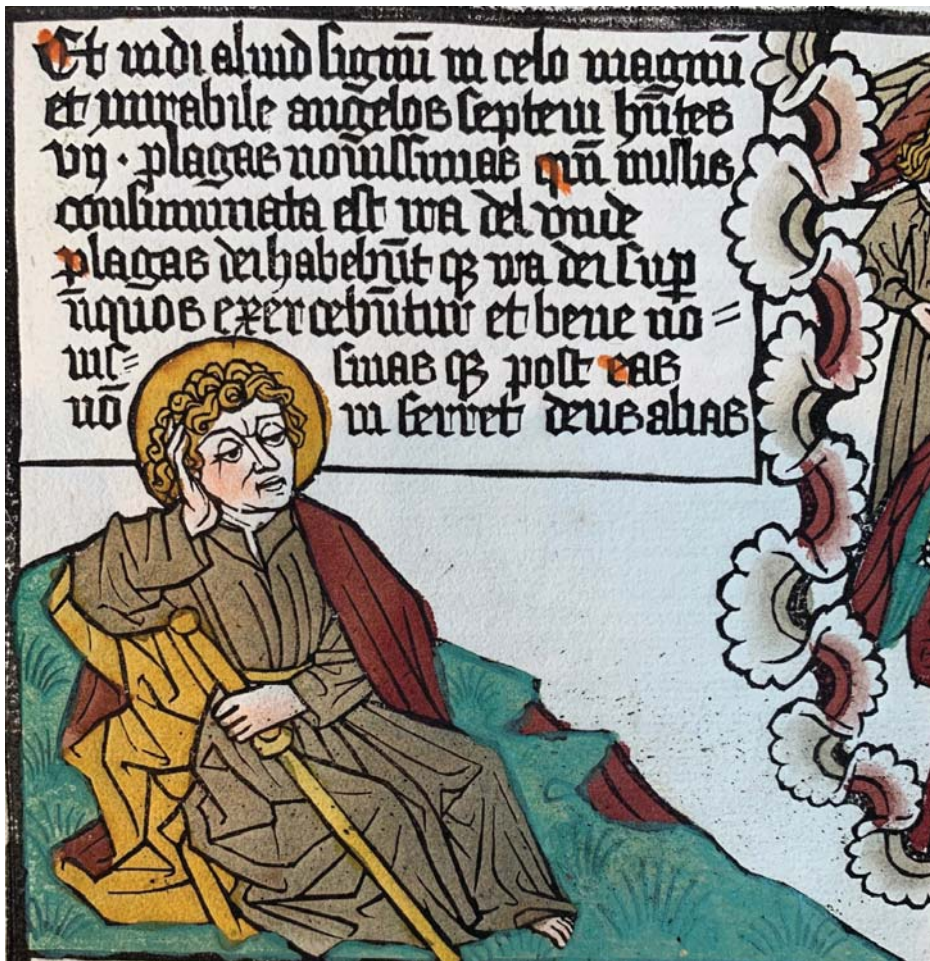 Et vidi aliud signū in celo magnū
et mirabile angelos septem hn̄tes
vij · plagas novissimas qm̄ in illis
consummata est ira dei vnde
plagas dei habebūt qꝫ ira dei sup̄
īiquos exercebūtur et bene no=
uis= simas qꝫ post eas
nō in ferret deus alias